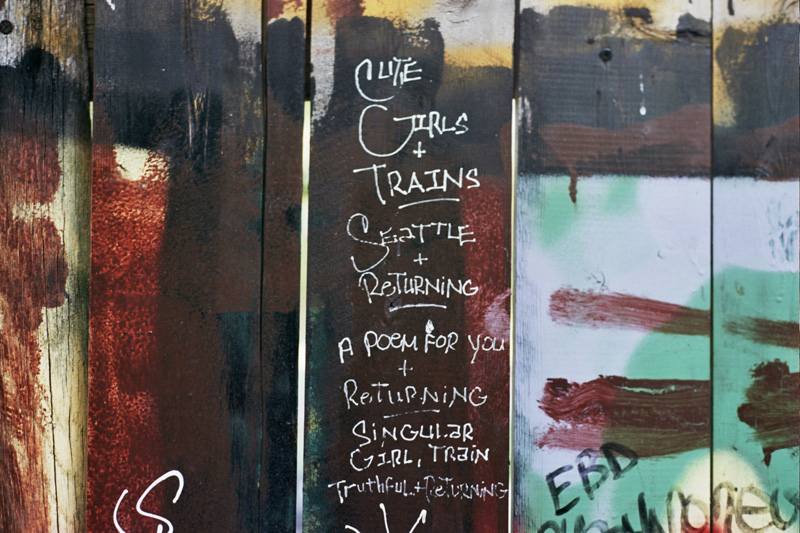 CUTIE
GIRLS
+
TRAINS
SEATTLE
+
RETURNING
A POEM FOR YOU
+
RETURNING
SINGULAR
GIRL, TRAIN
Truthful + RETURNING
S
EBD